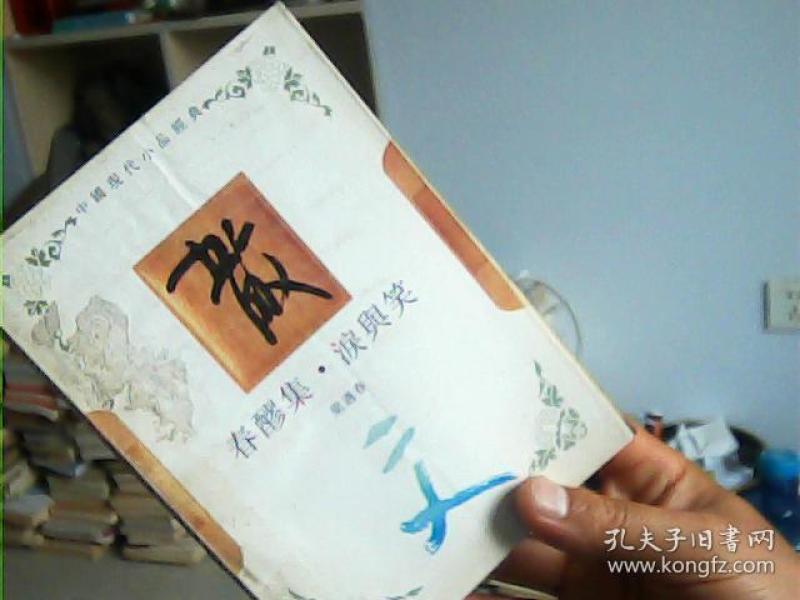 中國現代小品經典
春醪集·淚與笑
梁遇春
孔夫子旧书网
www.kongfz.com